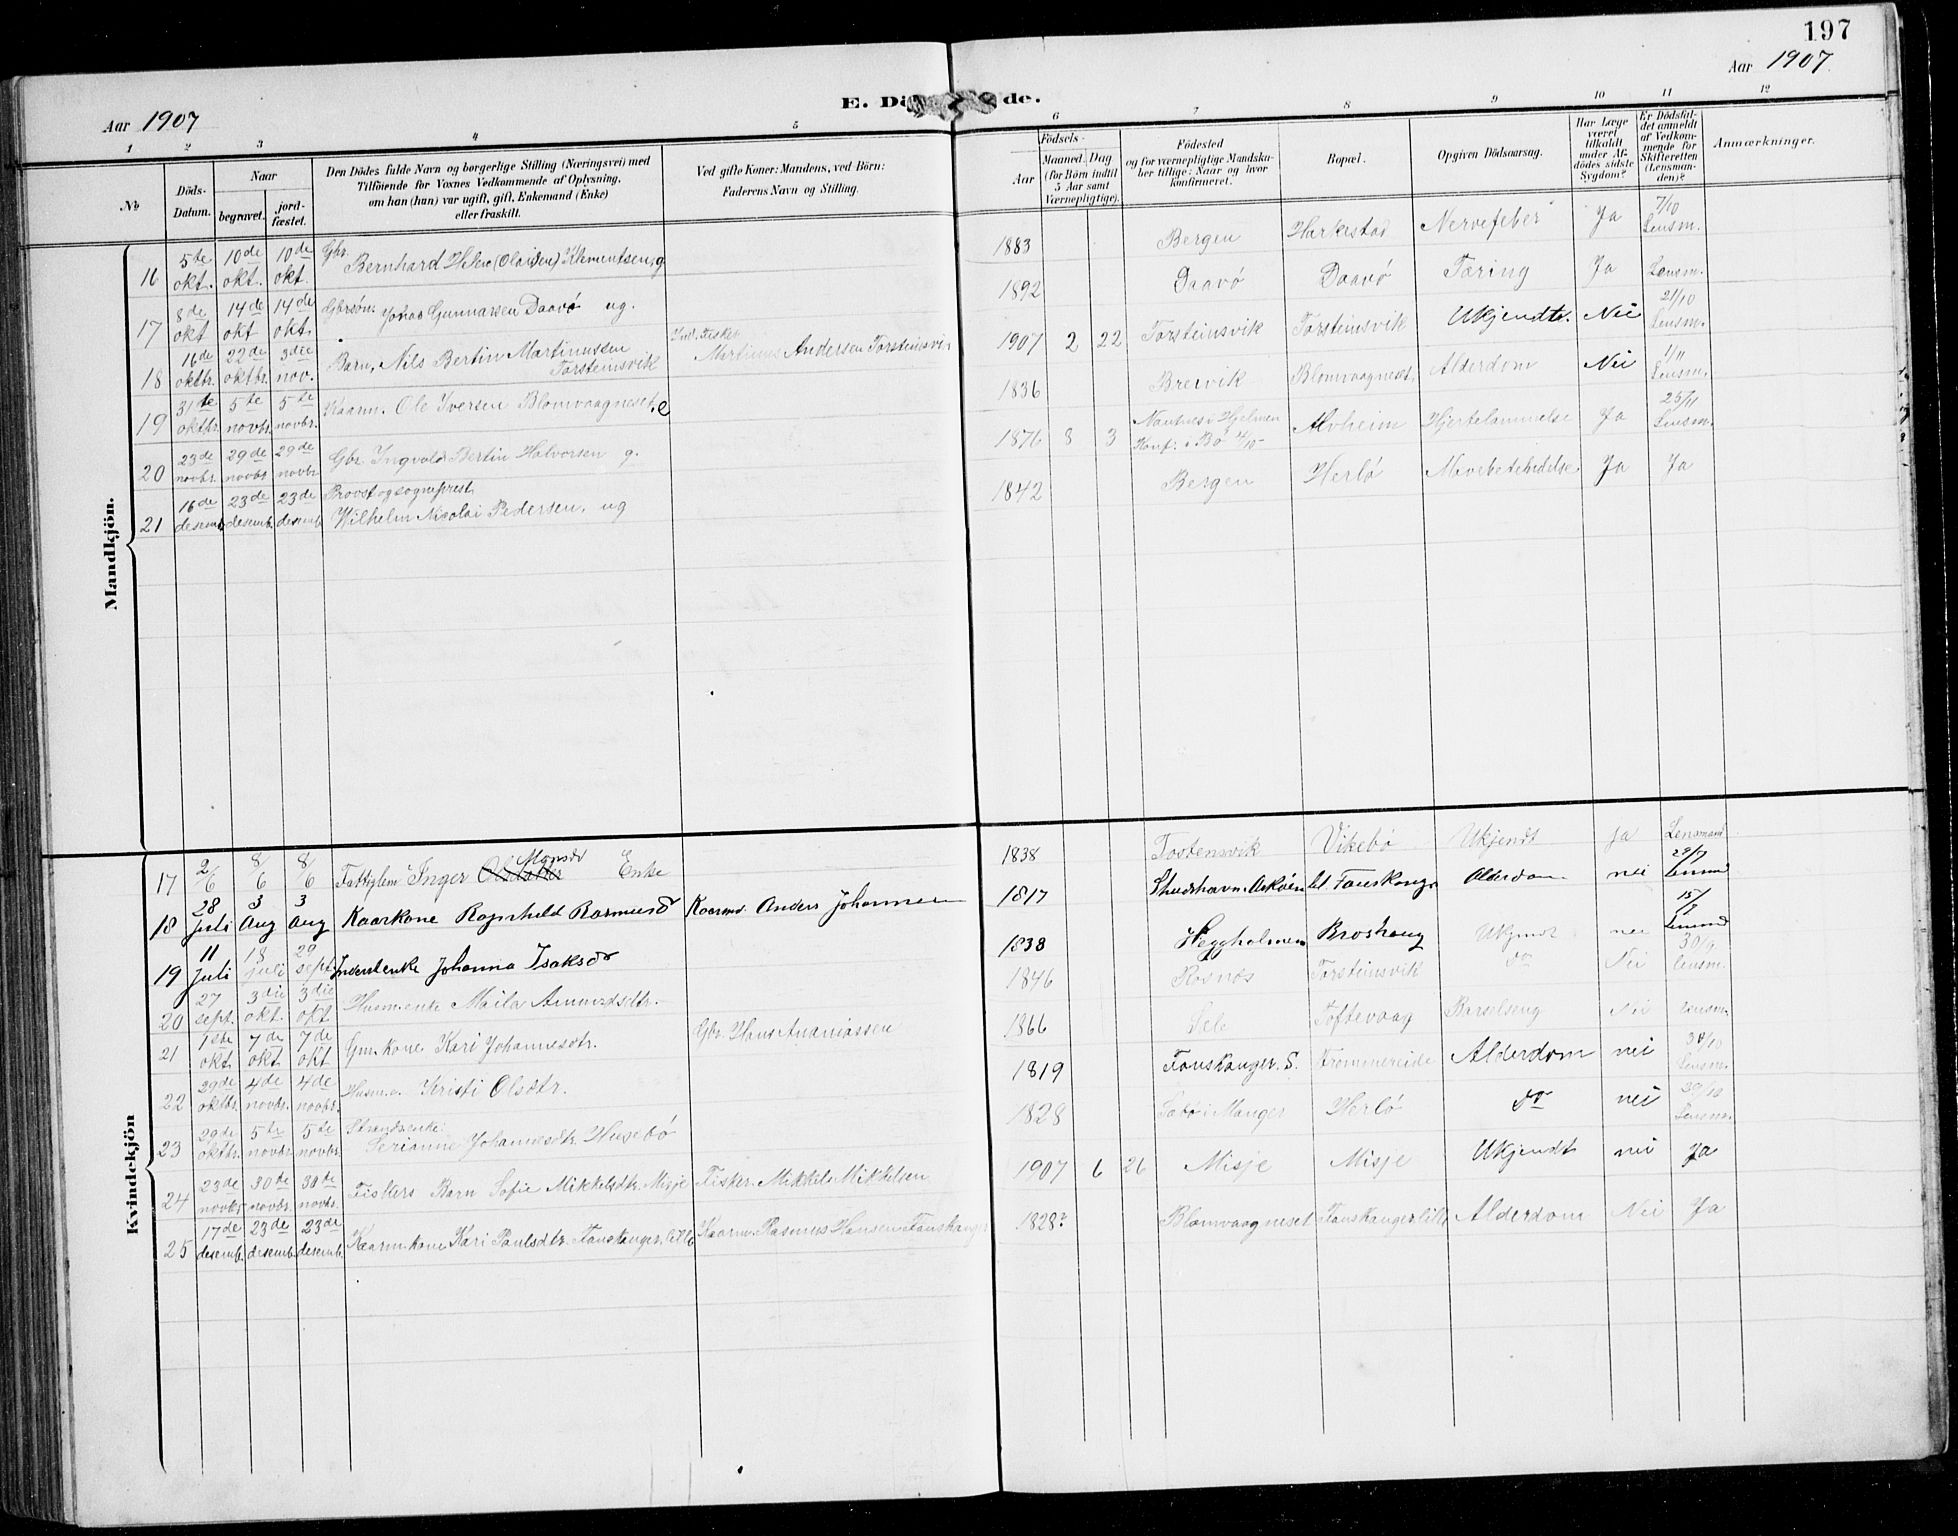 197
Aar 1907
Aar 1907.
E. Dö de.
1 2 3 4 5 6 7 8 9 10 11 12
No
Döds-Datum.
Naar
begravet.
jord-fæstet.
Den Dödes fulde Navn og borgerlige Stilling (Næringsvei) med
Tilföiende for Voxnes Vedkommende af Oplysning,
om han (hun) var ugift, gift, Enkemand (Enke)
eller fraskilt.
Ved gifte Koner: Mandens, ved Börn:
Faderens Navn og Stilling.
Födsels-
Aar
Maaned. Dag
(for Börn indtil
5 Aar samt
Værnepligtige).
Födested
og for værnepligtige Mandska-
ber tillige: Naar og hvor
konfirmeret.
Bopæl.
Opgiven Dödsaarsag.
Har Læge
været
tilkaldt
under Af-
dödes sidste
Sygdom?
Er Dödsfal-
det anmeldt
af Vedkom-
mende for
Skifteretten
(Lensman-
den)?
Anmærkninger.
Mandkjön.
16 5te okt. 10de okt. 10de okt. Gbr. Bernhard (Olaisen) Klementsen, g 1883 Bergen Herkestad Nervefeber Ja 7/10 Lensm.
17 8de okt 14de okt 14de okt. Gbrsøn. Johas Gunnarsen Daavø ug. 1892 Daavø Daavø Tæring Ja Lensm.
18 16de oktbr. 22de oktbr. 3die nov. Barn, Nils Bertin Martinussen Torsteinsvik Fisker Martinus Andersen Torsteinsvik 1907 2 22 Torsteinsvik Torsteinsvik Ukjendt. Nei 21/10 Lensm.
19 31te oktbr. 5te novbr. 5te novbr. Kaarm. Ole Iversen Blomvaagneset, e 1836 Breivik Blomvaagneset, Alderdom Nei 1/11 Lensm.
20 23de novbr. 29de novbr 29de novbr Gbr. Ingvald Bertin Halvorsen g. 1876 8 3 Hjelmen Konf. i Bø 4/10- Alvheim Hjertelammelse Ja 25/11 Lensm.
21 16de desemb. 23de desemb. 23de desemb. Provst og sogneprest Wilhelm Nicolai Pedersen, ug 1842 Bergen Herlø Mavebetændelse Ja Ja
Kvindekjön
17 2/6 8/6 8/6 Fattiglem Inger Monsdr Enke 1838 Tostensvik Vikebø Ukjendt Ja Lensmand
18 28 Juli 3 Aug 3 Aug Kaarkone Ragnhild Rasmusd Kaarmd Anders Johannesen 1817 Skudshavn. Askøen lil. Fauskanger Alderdom nei 29/7 Lensmd
19 11 Juli 18 juli 29 sept. Inderstenke Johanna Isaksdr 1838 Heggholmen Broshaug Ukjendt nei 15/7 Lensmd
20 27 sept. 3die okt. 3die okt Husm.enke Amundsdtr. 1846 Rosnes Torsteinsvik do Nei 30/9 Lensm.
21 1ste okt. 7de okt 7de okt Gm.kone Kari Johannesdtr. Gbr. Hans Ananiassen 1866 Sele Toftevaag Barselseng Nei Lensm.
22 29de oktbr. 4de novbr. 4de novbr. Husm.e. Kristi Olsdtr. 1819 Fauskanger. S. Frommereide Alderdom nei 30/10 Lensm.
23 29de oktbr. 5te novbr. 5te novbr. Strandenke. Serianne Johannesdtr. Husebø 1828 Sæbø i Manger Herlø do nei 30/10 Lensm.
24 23de novbr. 30de novbr. 30de novbr. Fiskers Barn Sofie Mikkelsdtr. Misje Fisker. Mikkel Mikkelsen 1907 6 26 Misje Misje Ukjendt nei Ja
25 17de desemb. 23de desemb. 23de desemb. Kaarm.kone Kari Paulsdtr. Fauskanger, lille Kaarm. Rasmus Hansen Fauskanger 1828? Blomvaagneset Fauskanger lille Alderdom Nei Ja